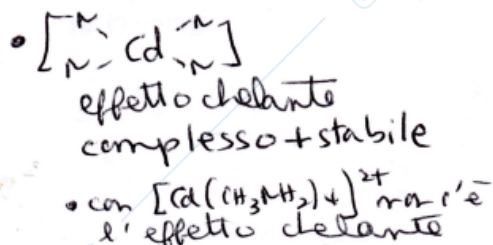 • [N N Cd N N]
effetto chelante
complesso + stabile
• con [Cd(CH₃NH₂)4]²⁺ non c'è
l'effetto chelante